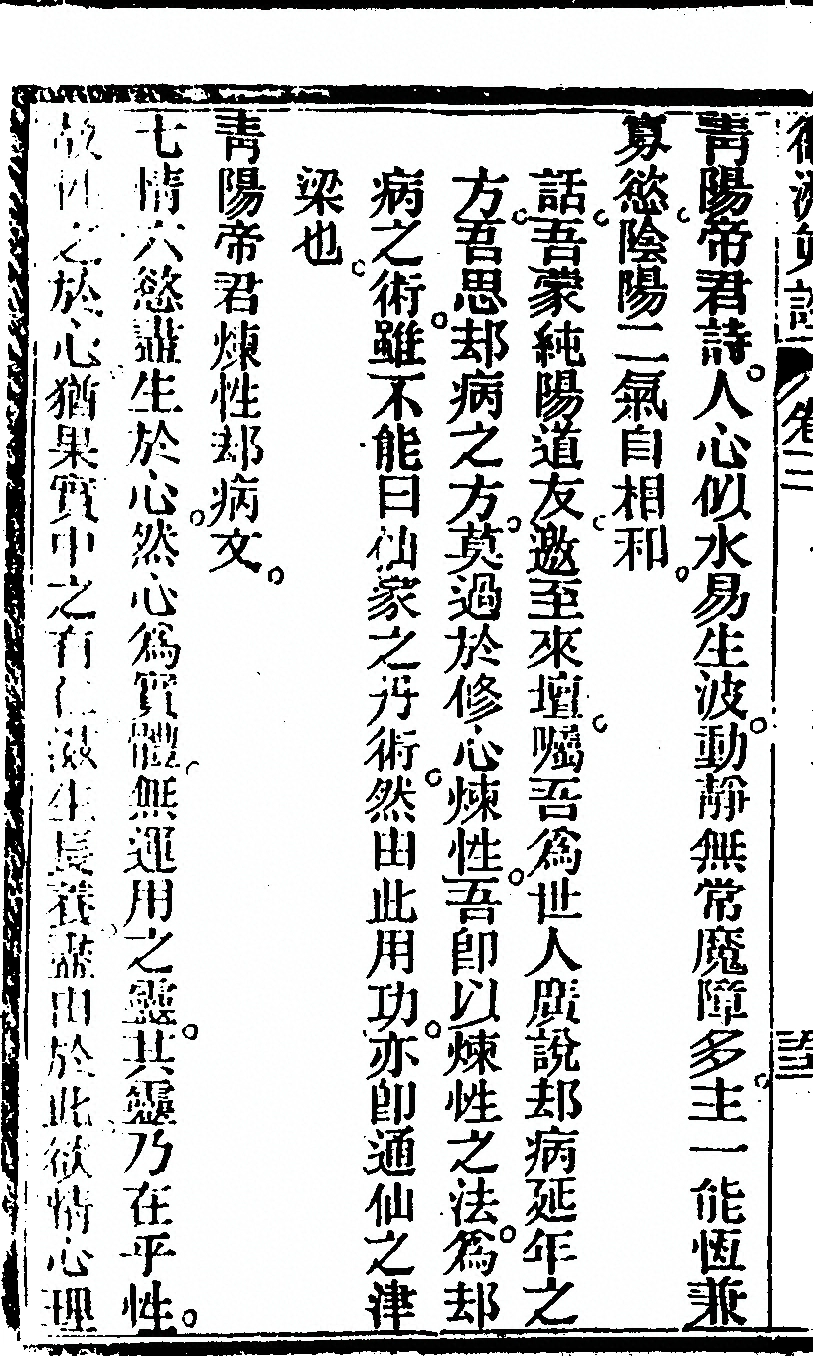 卷三
青陽帝君詩。人心似水易生波。動靜無常魔障多。主一能恆兼
寡慾。陰陽二氣自相和。
話。吾蒙純陽道友。邀至來壇。囑吾爲世人廣說却病延年之
方。吾思却病之方。莫過於修心煉性。吾即以煉性之法。爲却
病之術。雖不能曰仙家之丹術。然由此用功。亦即通仙之津
梁也。
青陽帝君煉性却病文。
七情六慾盡生於心。然心爲實體。無運用之靈。其靈乃在乎性。
故性之於心。猶果實中之有仁滋生長養。盡由於此。欲情心理